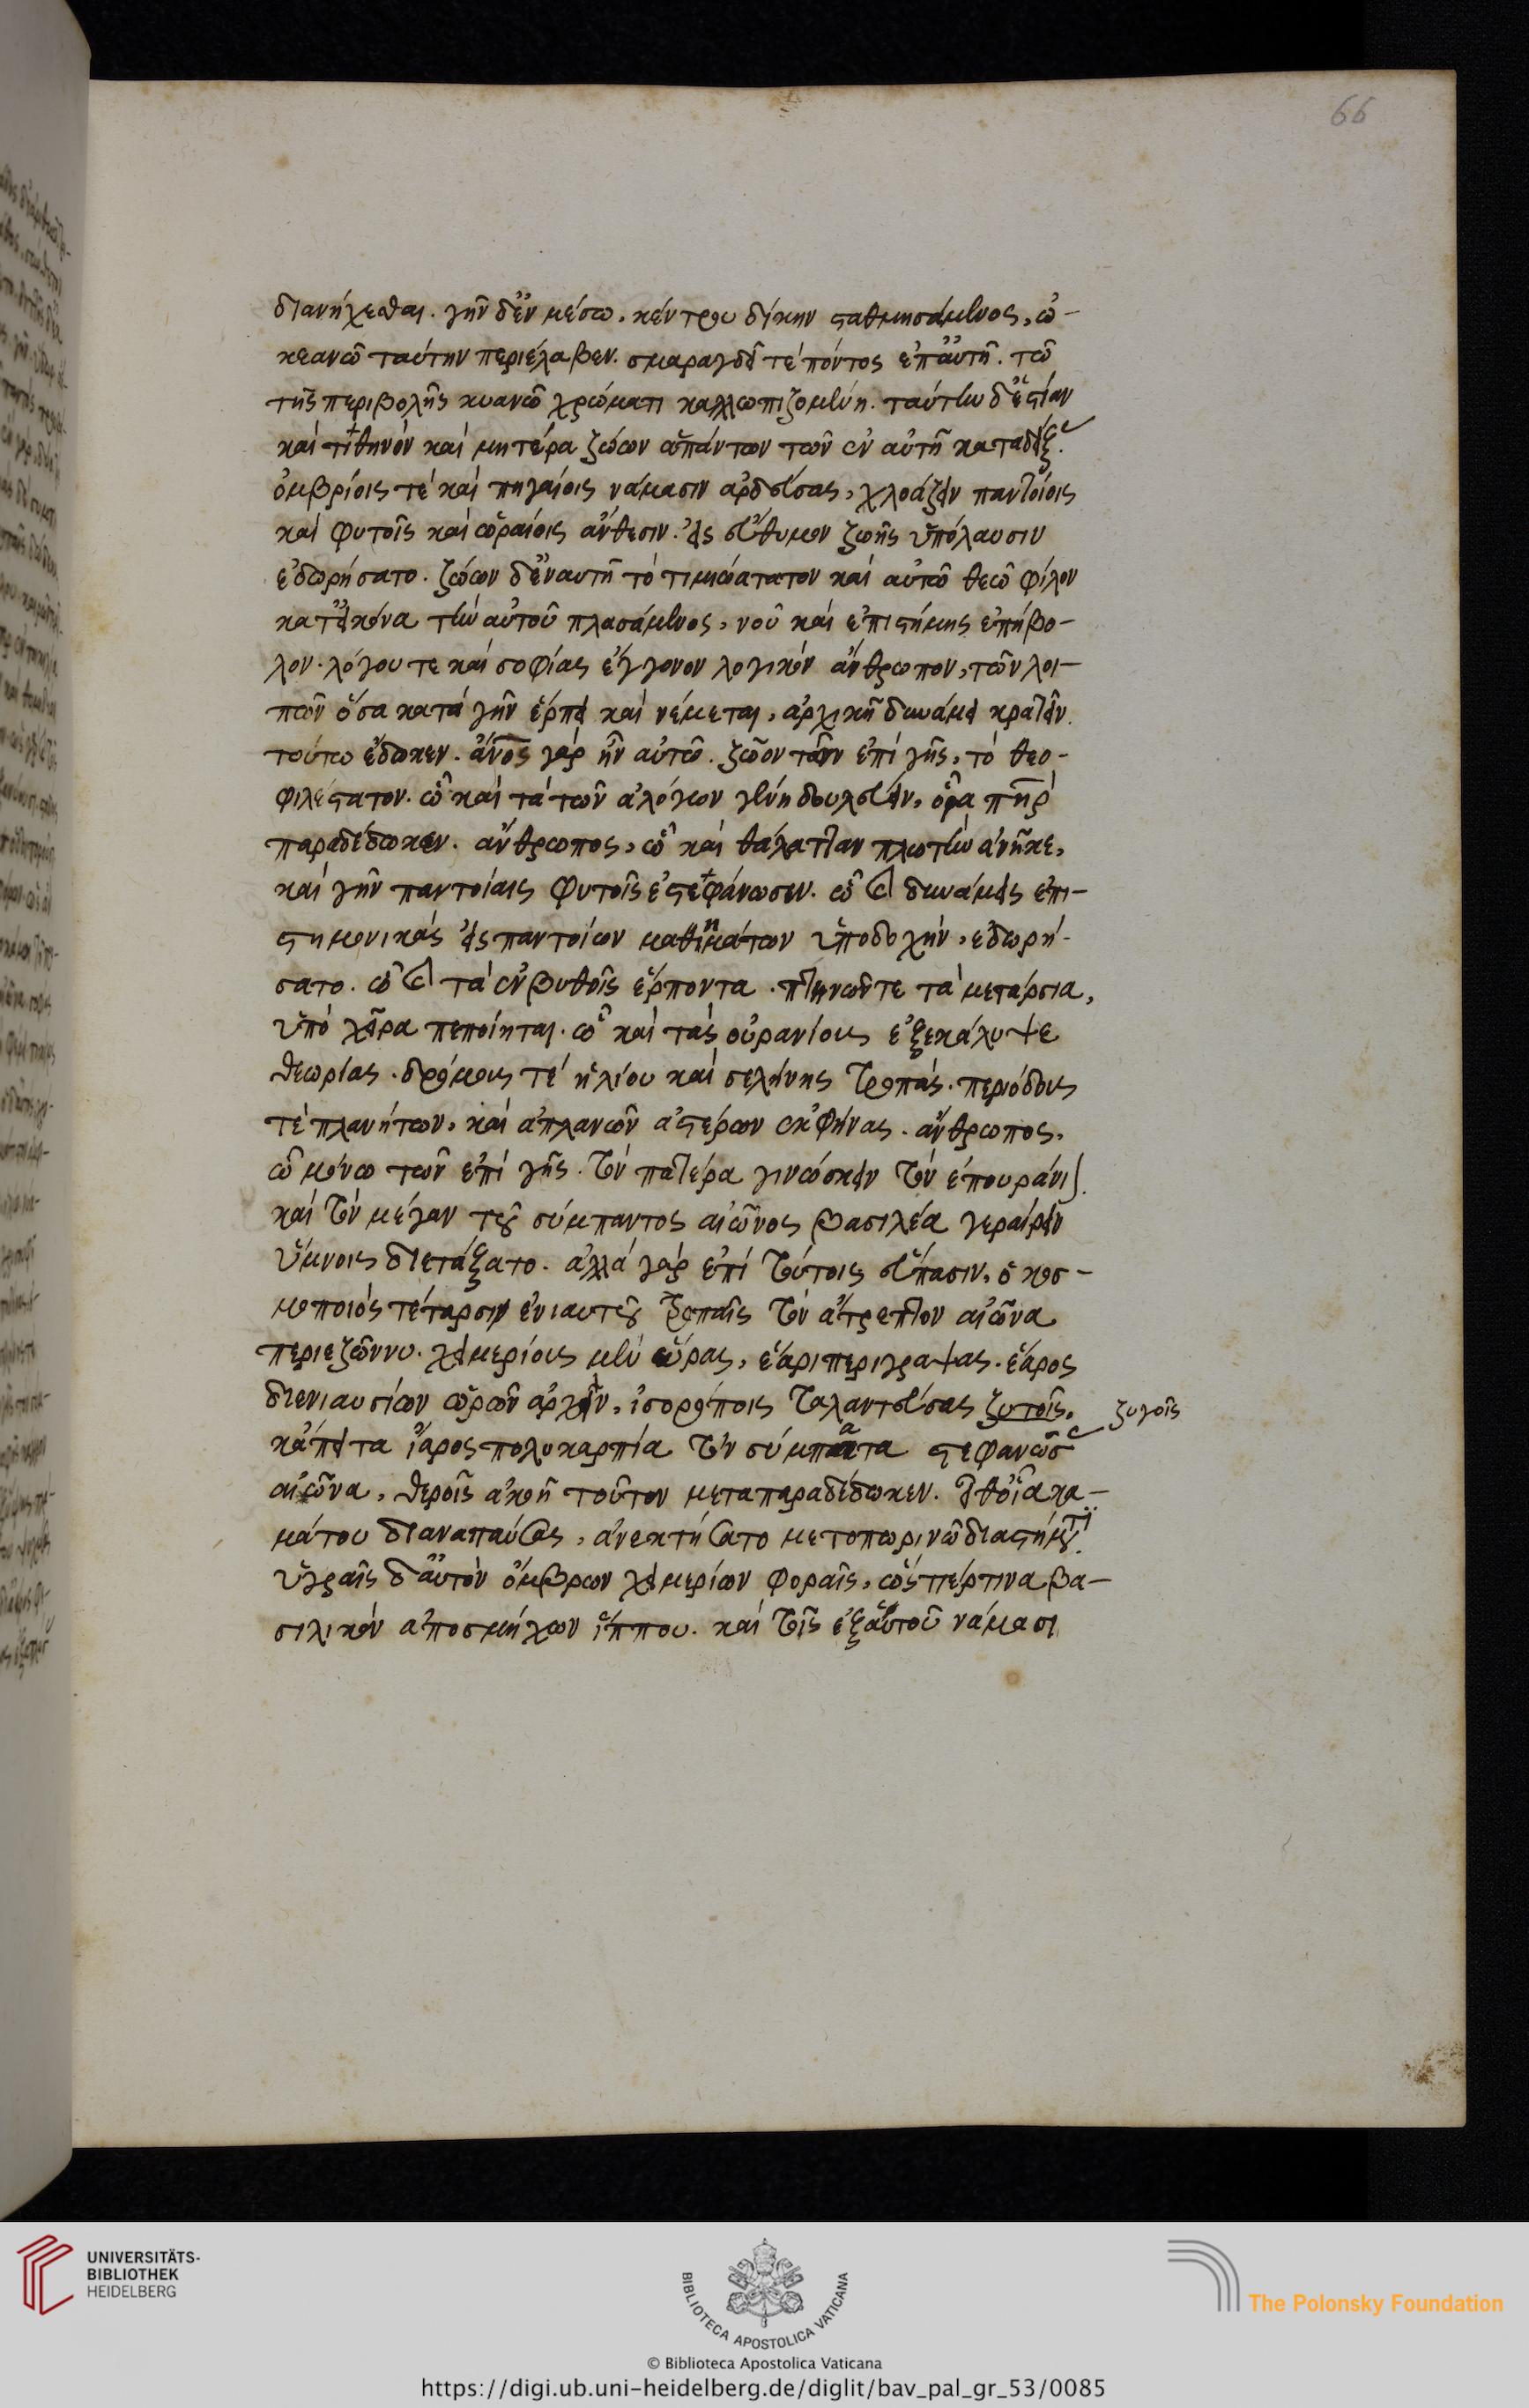 66
διανήχεσθαι. γῆν δ' ἐν μέσω, κέντρου δίκην σταθμησάμενος, ὠ-
κεανῶ ταύτην περιέλαβεν. σμαραγδεῖ τέ πόντος ἐπ' αὐτῆ. τῶ
τῆς περιβολῆς κυανῶ χρώματι καλλωπιζομένη. ταύτην δ' ἑστίαν
καὶ τιθηνὸν καὶ μητέρα ζώων ἁπάντων τῶν ἐν αὐτῆ καταδείξας.
ὀμβρίοις τὲ καὶ πηγαίοις νάμασιν ἀρδεύσας, χλοάζειν παντοίοις
καὶ φυτοῖς καὶ ὡραίοις ἄνθεσιν. εἰς εὔθυμον ζωῆς ὑπόλαυσιν
ἐδωρήσατο. ζώων δ' ἐν αυτῆ τὸ τιμιώτατον καὶ αὐτῶ θεῶ φίλον
κατ' εἰκόνα τὴν αὐτοῦ πλασάμενος, νοῦ καὶ ἐπιστήμης ἐπήβο-
λον. λόγου τε καὶ σοφίας ἔγγονον λογικὸν ἄνθρωπον, τῶν λοι-
πῶν ὅσα κατὰ γῆν ἕρπει καὶ νέμεται, ἀρχικῆ δυνάμει κρατεῖν
τούτω ἔδωκεν. ἄνος γὰρ ἦν αὐτῶ. ζῶον τῶν ἐπὶ γῆς, τὸ θεο-
φιλέστατον. ὧ καὶ τὰ τῶν ἀλόγων γένη δουλεύειν, οἷα πηρ
παραδέδωκεν. ἄνθρωπος, ὧ καὶ θάλατταν πλωτὴν ἀνῆκε,
καὶ γῆν παντοίαις φυτοῖς ἐστεφάνωσεν. ὧ καὶ δυνάμεις ἐπι-
στημονικὰς εἰς παντοίων μαθημάτων ὑποδοχήν, ἐδωρή-
σατο. ὧ καὶ τὰ ἐν βυθοῖς ἕρποντα. πτηνῶν τε τὰ μετάρσια,
ὑπὸ χεῖρα πεποίηται. ὧ καὶ τὰς οὐρανίους ἐξεκάλυψε
θεωρίας. δρόμους τέ ἡλίου καὶ σελήνης τροπάς. περιόδους
τὲ πλανήτων, καὶ ἀπλανῶν ἀστέρων ἐκφήνας. ἄνθρωπος,
ὧ μόνω τῶν ἐπὶ γῆς. τὸν πατέρα γινώσκειν τὸν ἐπουράνιον.
καὶ τὸν μέγαν τοῦ σύμπαντος αἰῶνος βασιλέα γεραίρειν
ὕμνοις διετάξατο. ἀλλὰ γὰρ ἐπὶ τούτοις ἅπασιν, ὁ κοσ-
μοποιός τέταρσιν ἐνιαυτοῦ τροπαῖς τὸν ἄτρεπτον αἰῶνα
περιεζώννυ. χειμερίους μὲν ὥρας, ἔαρι περιγραψας. ἔαρος
δ' ἐνιαυσίων ὡρῶν ἀρχὴν, ἰσορρόποις ταλαντεύσας ζυτοῖς.
ζυγοῖς
κἄπειτα ἔαρος πολυκαρπία τὸν σύμπαντα στεφανώσας
αἰῶνα, θεροῖς ἀκοῆ τοῦτον μεταπαραδέδωκεν. εἶθ' οἷα κα-
μάτου διαναπαύσας, ἀνεκτήσατο μετοπωρινῶ διαστήματι.
ὑγραῖς δ' αὐτὸν ὄμβρων χειμερίων φοραῖς, ὥσπερ τινα βα-
σιλικὸν ἀποσμήχων ἵππου. καὶ τοῖς ἐξ αὐτοῦ νάμασι
UNIVERSITÄTS-
BIBLIOTHEK
HEIDELBERG
BIBLIOTECA APOSTOLICA VATICANA
The Polonsky Foundation
© Biblioteca Apostolica Vaticana
https://digi.ub.uni-heidelberg.de/diglit/bav_pal_gr_53/0085